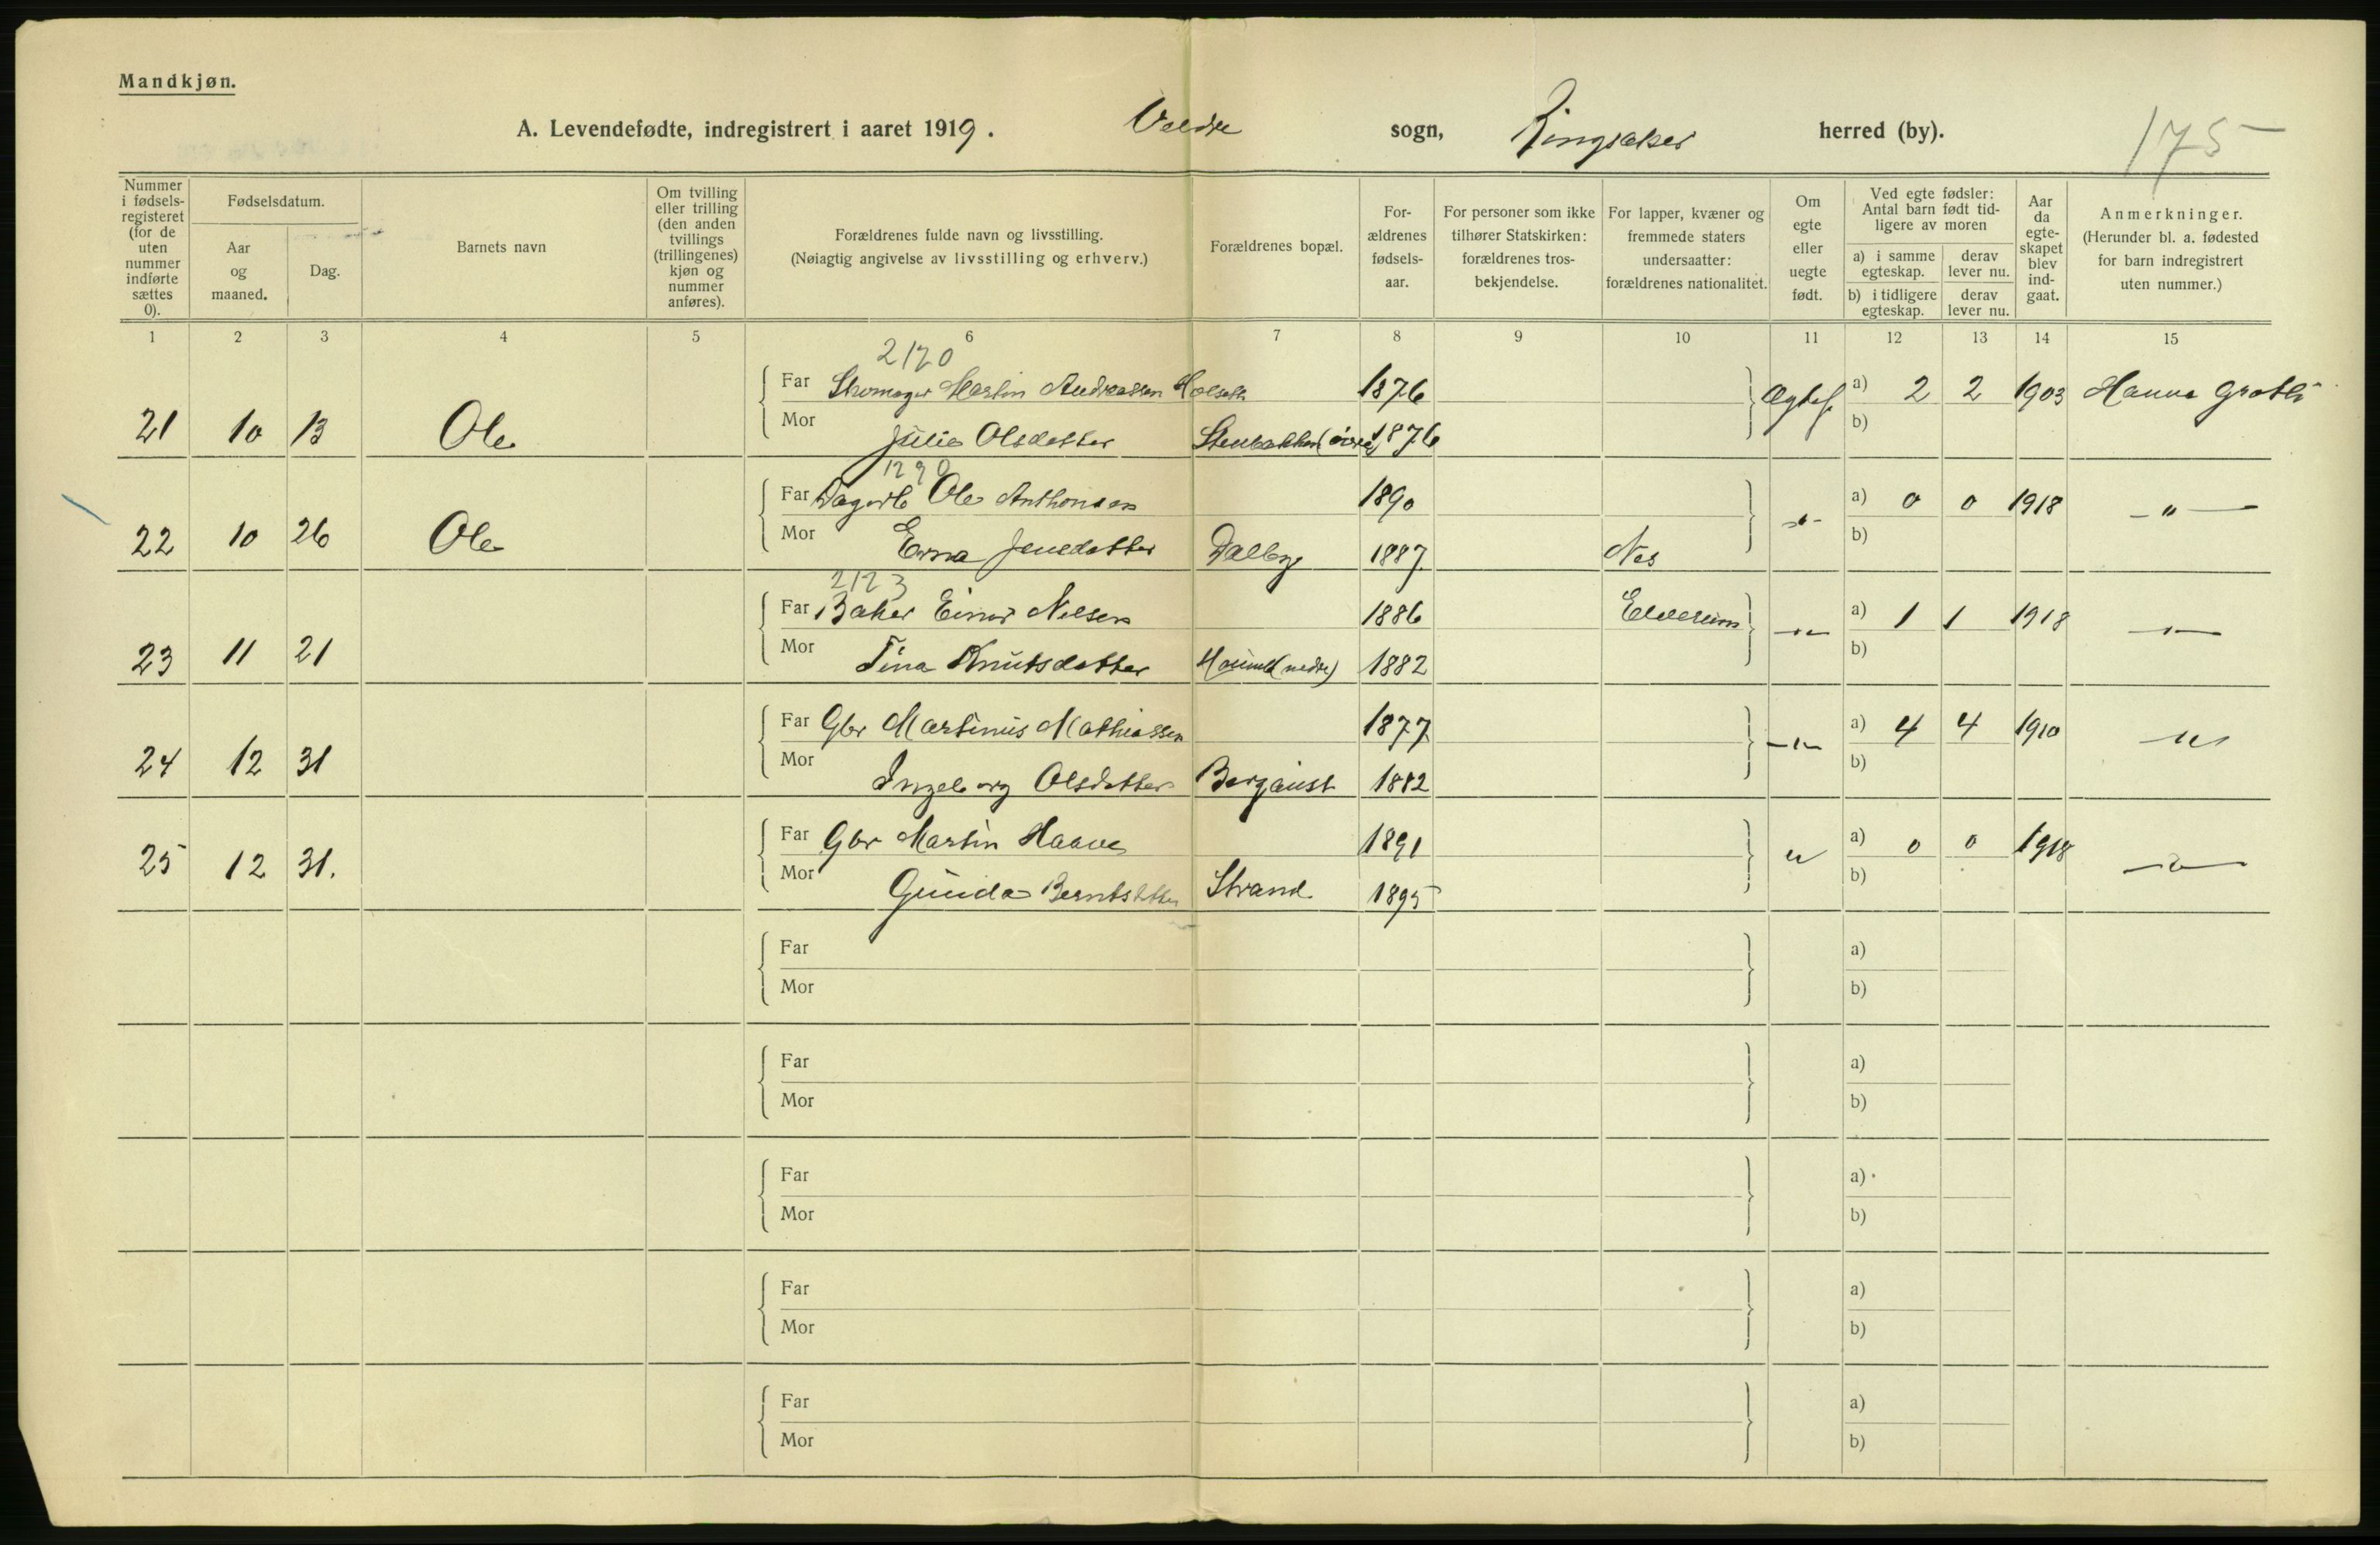 Mandkjøn.
A. Levendefødte, indregistrert i aaret 1919. Veldre sogn, Ringsaker herred (by). 175
Nummer i fødselsregisteret (for de uten nummer indførte sættes 0).
Fødselsdatum.
Aar og maaned.
Dag.
Barnets navn
Om tvilling eller trilling (den anden tvillings (trillingenes) kjøn og nummer anføres).
Forældrenes fulde navn og livsstilling.
(Nøiagtig angivelse av livsstilling og erhverv.)
Forældrenes bopæl.
Forældrenes fødselsaar.
For personer som ikke tilhører Statskirken: forældrenes trosbekjendelse.
For lapper, kvæner og fremmede staters undersaatter: forældrenes nationalitet.
Om egte eller uegte født.
Ved egte fødsler: Antal barn født tidligere av moren
a) i samme egteskap. derav lever nu.
b) i tidligere egteskap. derav lever nu.
Aar da egteskapet blev indgaat.
Anmerkninger.
(Herunder bl. a. fødested for barn indregistrert uten nummer.)
1 2 3 4 5 6 7 8 9 10 11 12 13 14 15
2120
Far Skomager Martin Andreassen Holseth 1876 Ægtef a) 2 2 1903 Hanna Grøtli
21 10 13 Ole Mor Julie Olsdatter Stenbakken (øvre) 1876 b)
1290
Far Dagarb Ole Anthonsen 1890 -"- a) 0 0 1918 -"-
22 10 26 Ole Mor Erna Jensdatter Dalby 1887 Nes b)
2123
Far Baker Einar Nilsen 1886 Elverum -"- a) 1 1 1918 -"-
23 11 21 Mor Tina Knutsdatter (nedre) 1882 b)
Far Gbr Martinus Mathiassen 1877 -"- a) 4 4 1910 -"-
24 12 31 Mor Ingeborg Olsdatter Bergaust 1882 b)
Far Gbr Martin Haave 1891 " a) 0 0 1918 -"-
25 12 31. Mor Gunda Berntsdatter Strand 1895 b)
Far a)
Mor b)
Far a)
Mor b)
Far a)
Mor b)
Far a)
Mor b)
Far a)
Mor b)